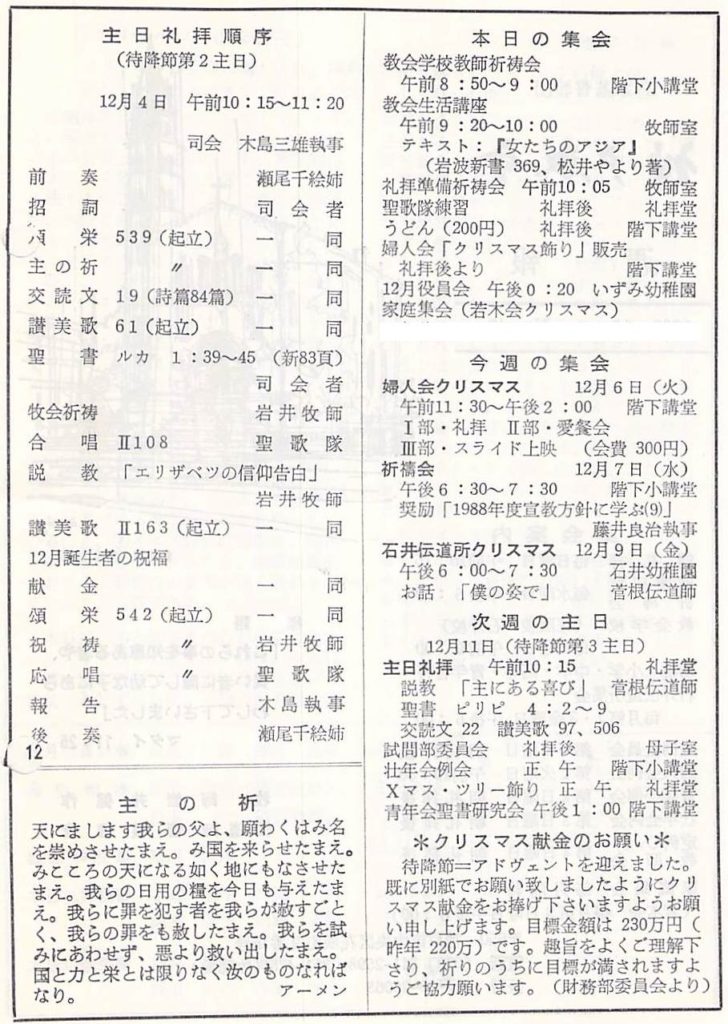 主日礼拝順序
(待降節第2主日)
12月4日 午前10:15〜11:20
司会 木島三雄執事
前奏 瀬尾千絵姉
招詞 司会者
頌栄 539(起立) 一同
主の祈 〃 一同
交読文 19(詩篇84篇) 一同
讃美歌 61(起立) 一同
聖書 ルカ 1:39〜45 (新83頁)
司会者
牧会祈祷 岩井牧師
合唱 Ⅱ108 聖歌隊
説教 「エリザベツの信仰告白」
岩井牧師
讃美歌 Ⅱ163(起立) 一同
12月誕生者の祝福
献金 一同
頌栄 542(起立) 一同
祝祷 〃 岩井牧師
応唱 〃 聖歌隊
報告 木島執事
後奏 瀬尾千絵姉
12
主の祈
天にまします我らの父よ、願わくはみ名
を崇めさせたまえ。み国を来らせたまえ。
みこころの天になる如く地にもなさせた
まえ。我らの日用の糧を今日も与えたま
え。我らに罪を犯す者を我らが赦すごと
く、我らの罪をも赦したまえ。我らを試
みにあわせず、悪より救い出したまえ。
国と力と栄とは限りなく汝のものなれば
なり。 アーメン
本日の集会
教会学校教師祈祷会
午前8:50〜9:00 階下小講堂
教会生活講座
午前9:20〜10:00 牧師室
テキスト:『女たちのアジア』
(岩波新書 369、松井やより著)
礼拝準備祈祷会 午前10:05 牧師室
聖歌隊練習 礼拝後 礼拝堂
うどん(200円) 礼拝後 階下講堂
婦人会「クリスマス飾り」販売
礼拝後より 階下講堂
12月役員会 午後0:20 いずみ幼稚園
家庭集会(若木会クリスマス)
今週の集会
婦人会クリスマス 12月6日(火)
午前11:30〜午後2:00 階下講堂
Ⅰ部・礼拝 Ⅱ部・愛餐会
Ⅲ部・スライド上映 (会費 300円)
祈祷会 12月7日(水)
午後6:30〜7:30 階下小講堂
奨励「1988年度宣教方針に学ぶ(9)」
藤井良治執事
石井伝道所クリスマス 12月9日(金)
午後6:00〜7:30 石井幼稚園
お話 「僕の姿で」 菅根伝道師
次週の主日
12月11日(待降節第3主日)
主日礼拝 午前10:15 礼拝堂
説教 「主にある喜び」 菅根伝道師
聖書 ピリピ 4:2〜9
交読文 22 讃美歌 97、506
試問部委員会 礼拝後 母子室
壮年会例会 正午 階下小講堂
Xマス・ツリー飾り 正午 礼拝堂
青年会聖書研究会 午後1:00 階下講堂
＊クリスマス献金のお願い＊
待降節＝アドヴェントを迎えました。
既に別紙でお願い致しましたようにクリ
スマス献金をお捧げ下さいますようお願
い申し上げます。目標金額は 230万円(
昨年 220万)です。趣旨をよくご理解下
さり、祈りのうちに目標が満されますよ
うご協力願います。(財務部委員会より)